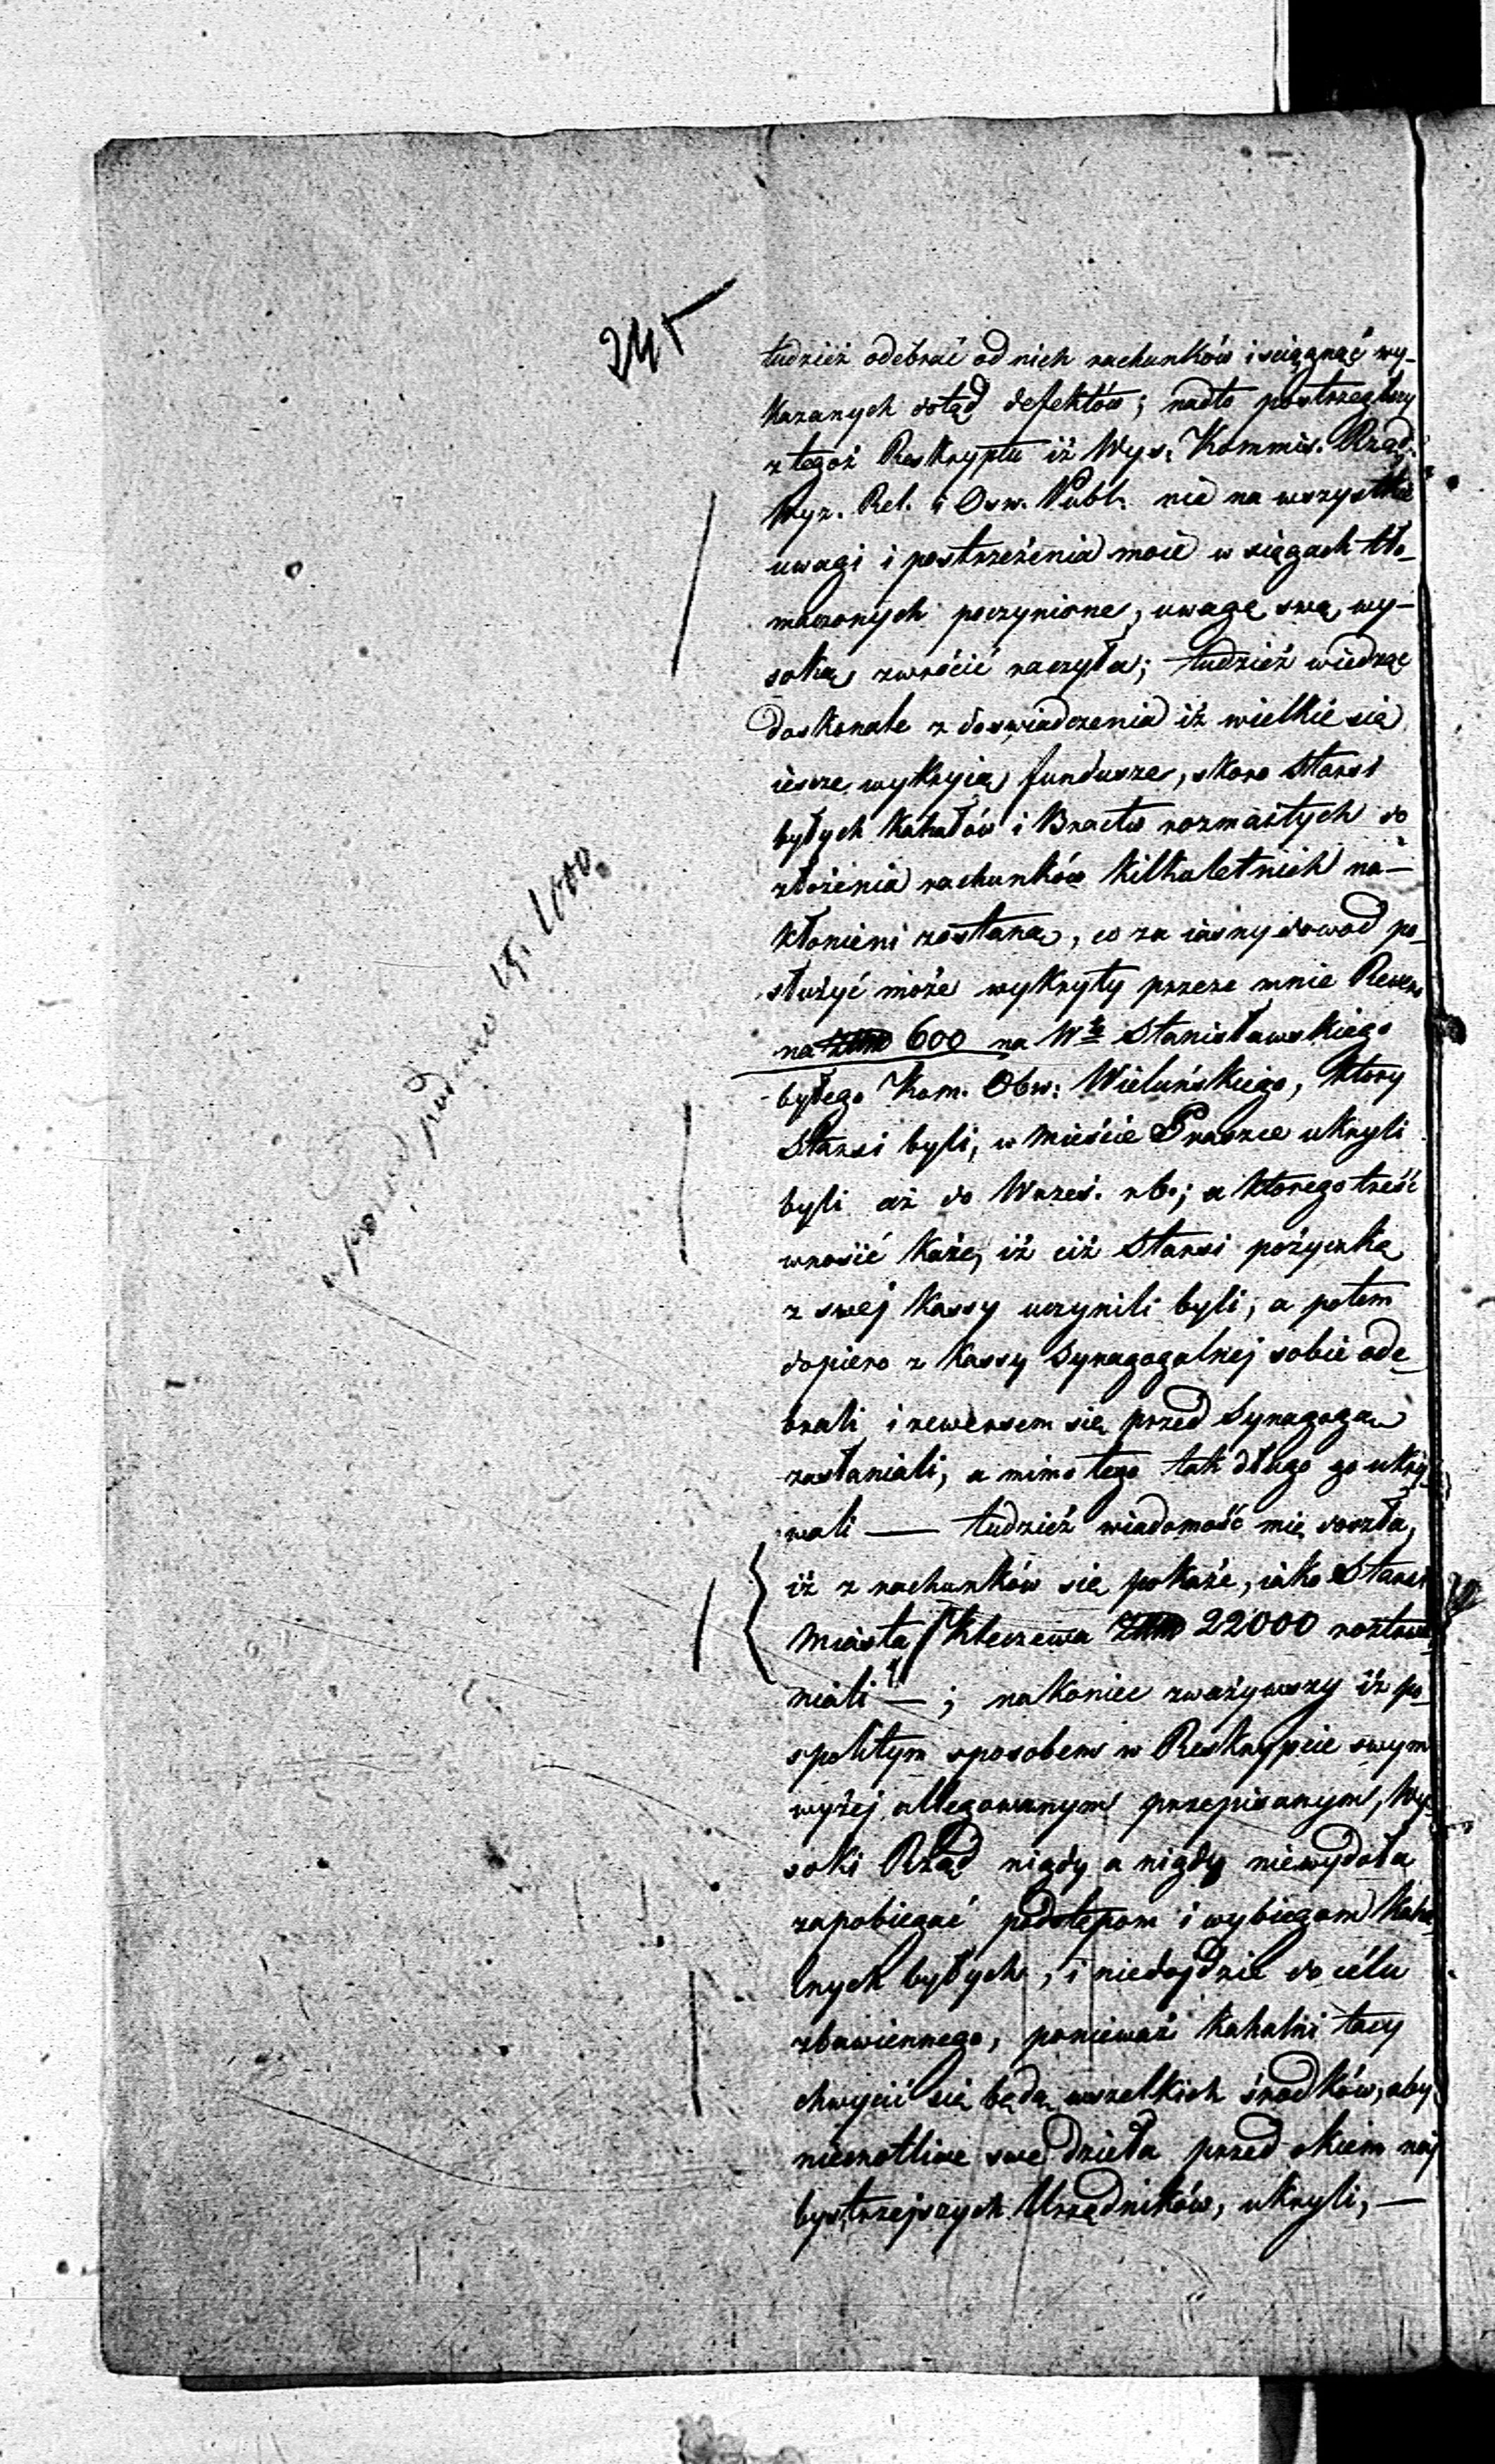 245
tudzież odebrać od nich rachunków i sciągnąć wy-
kazanych dotąd defektów; nadto postrzegłszy
z tegoż Reskryptu iż Wys. Kommis. Rząd.
Wyz. Rel. i Osw. Publ. nie na wszystkie
uwagi i postrzeżenia moie w xięgach tło-
maczonych poczynione, uwagę swą wy-
soką zwrócić raczyła; tudzież wiedząc
doskonale z doswiadczenia iż wielkie się
iescze wykryią fundusze, skoro Starsi
byłych Kahałów i Bractw rozmaitych do
złożenia rachunków kilkaletnich na-
kłonieni zostaną, co za iasny dowod po-
służyć może wykryty przeze mnie Rewers
na 600 na Wgo Stanisławskiego
byłego Kom. Obw: Wieluńskiego, ktory
Starsi byli, w mieście Praszce ukryli
byli aż do Wrześ. rb.; a ktorego treść
wnosić każe, iż ciż Starsi pożyczkę
z swej Kassy uczynili byli, a potem
dopiero z Kassy Synagogalnej sobie ode-
brali i rewersem się przed Synagogą
zasłaniali, a mimo tego tak długo go ukry-
wali — tudzież wiadomość mię doszła,
iż z rachunków się pokaże, iako Starsi
miasta Kleczewa 22000 roztrwo-
niali —; nakoniec zważywszy iż po-
spolitym sposobem w Reskrypcie swym
wyżej allegowanym przepisanym, Wy-
soki Rząd nigdy a nigdy niewydoła
zapobiegać podstępom i wybiegom Kaha-
lnych byłych, i niedojdzie do celu
zbawiennego, ponieważ Kahalni tacy
chwycić się będą wszelkich środków, aby
niecnotliwe swe dzieła przed okiem naj-
bystrzejszych Urzędników, ukryli, —